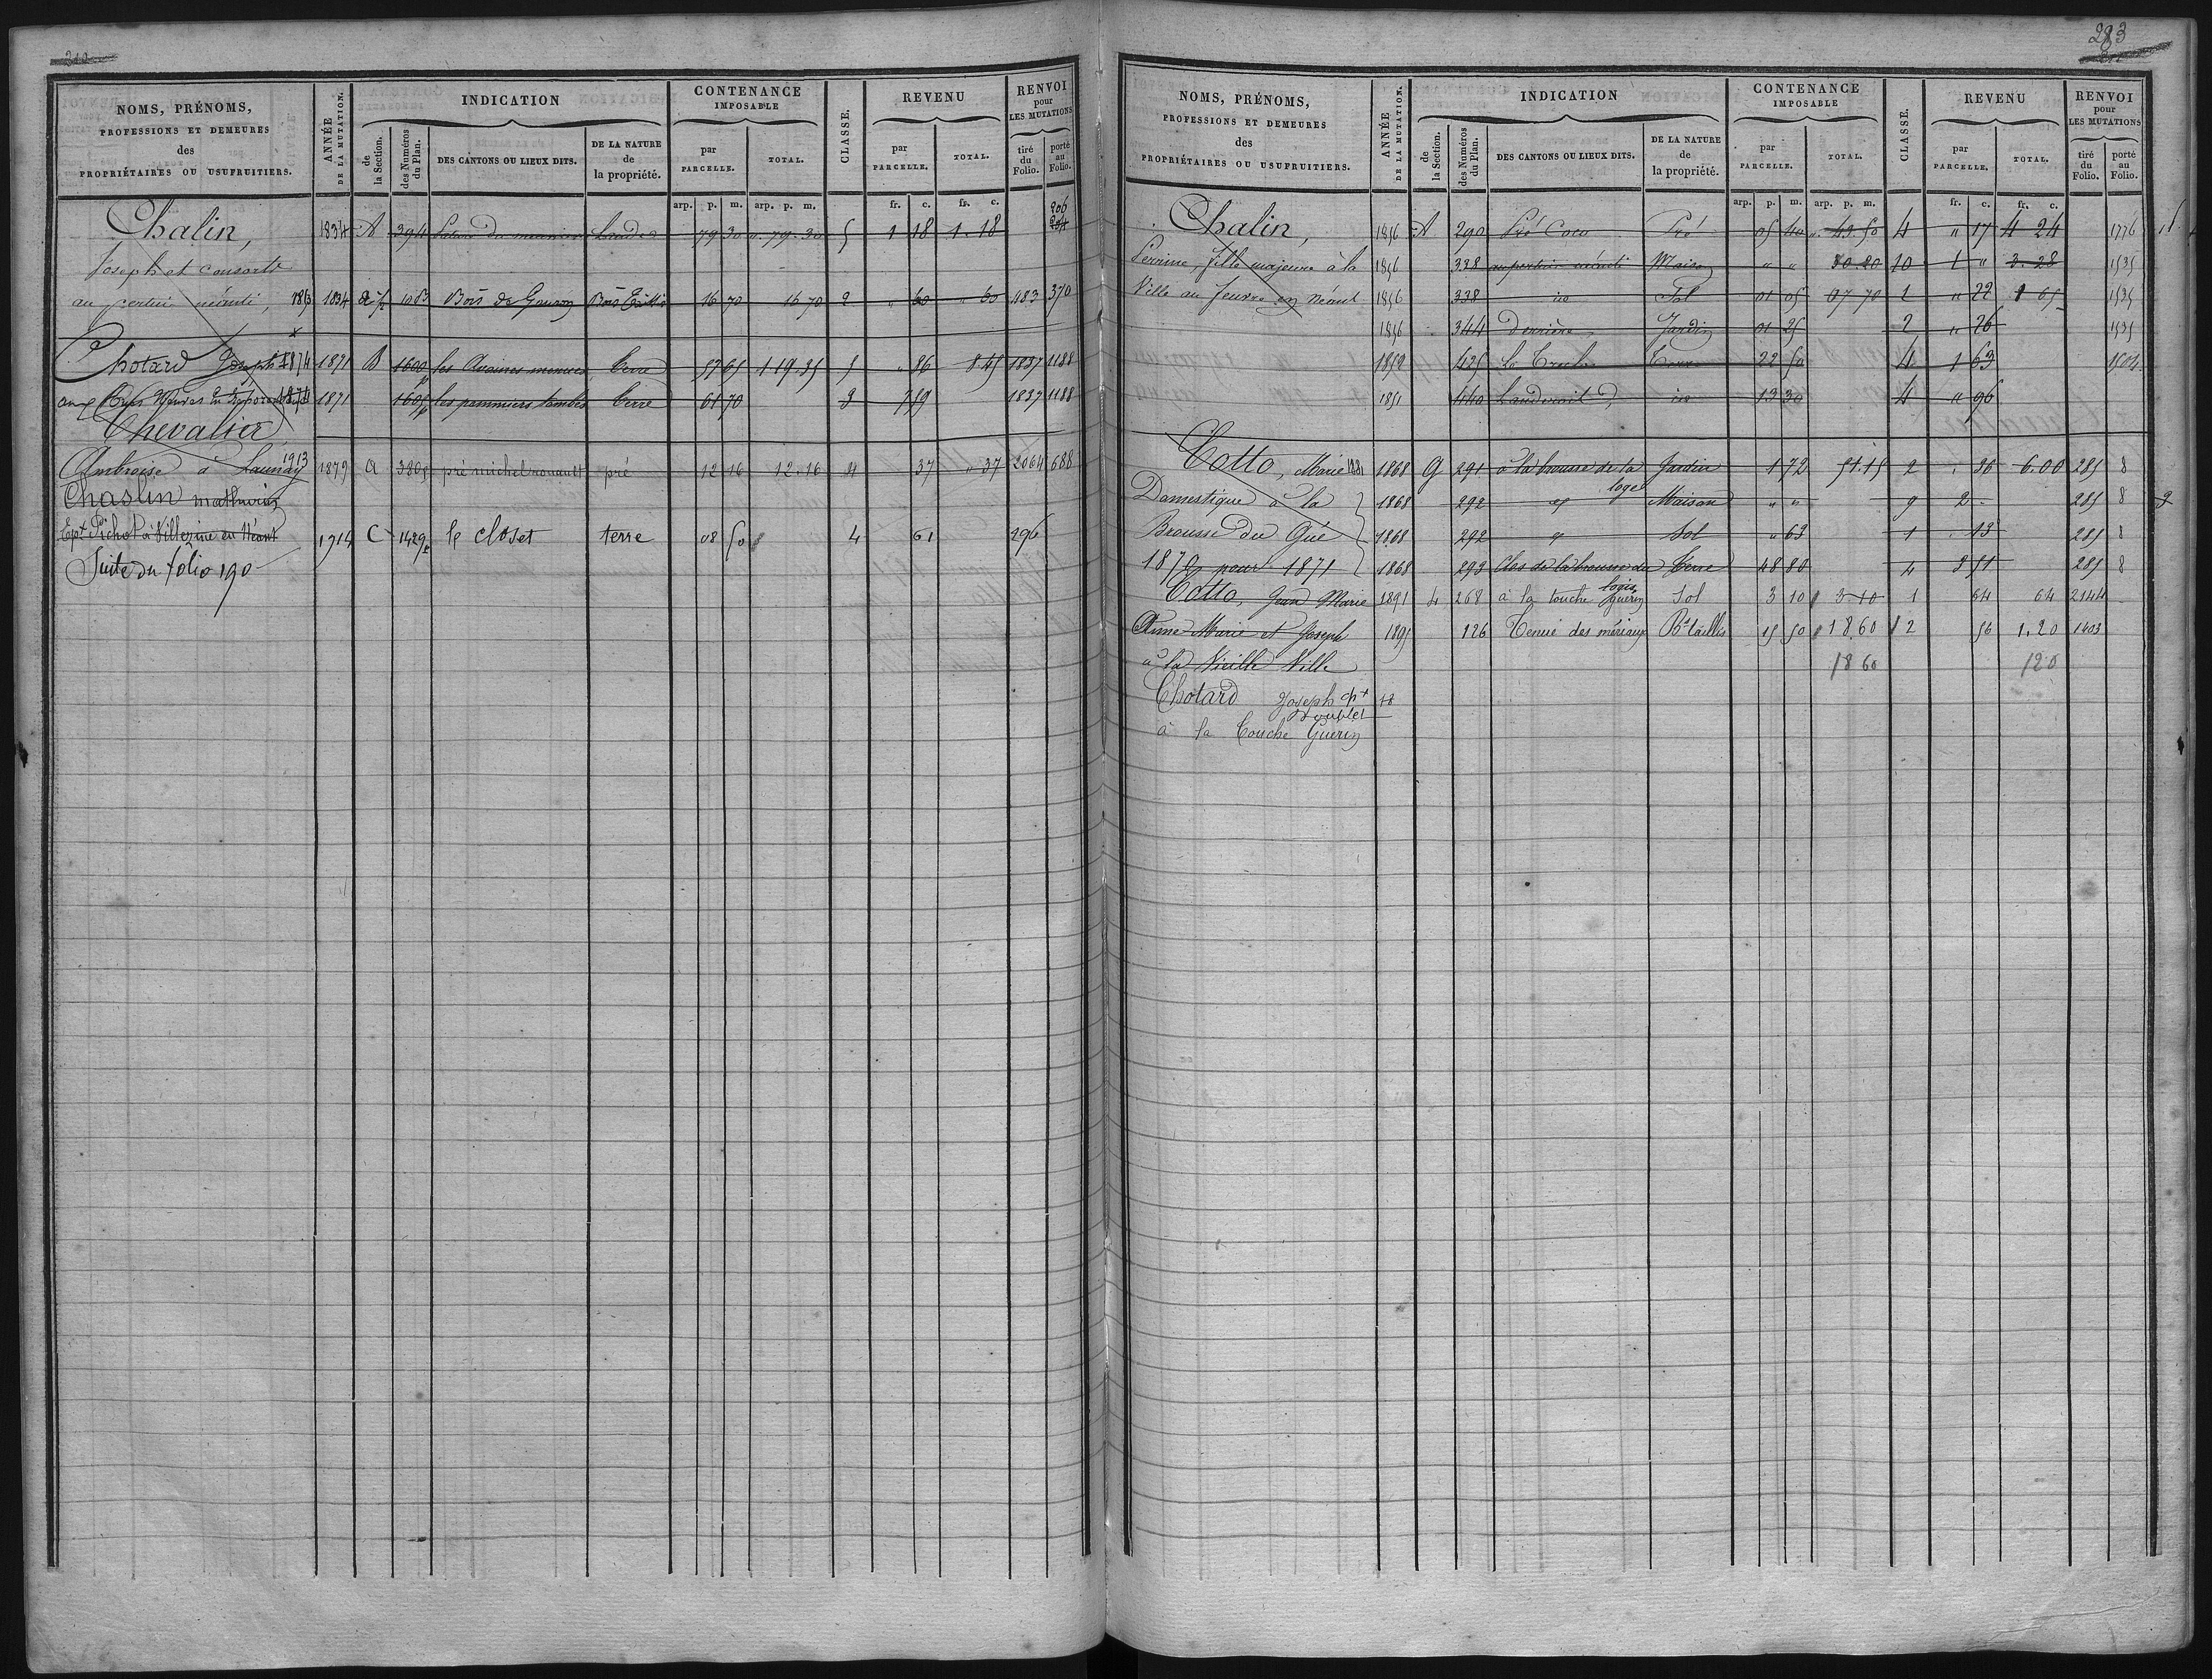 NOMS, PRÉNOMS,
PROFESSIONS ET DEMEURES
des
PROPRIÉTAIRES OU USUFRUITIERS.
ANNÉE DE LA MUTATION.
INDICATION
de la Section.
des Numéros du Plan.
DES CANTONS OU LIEUX DITS.
DE LA NATURE de la propriété.
CONTENANCE IMPOSABLE
par PARCELLE.
TOTAL.
CLASSE.
REVENU
par PARCELLE.
TOTAL.
RENVOI pour LES MUTATIONS
tiré du Folio.
porté au Folio.
arp. p. m. arp. p. m. fr. c. fr. c.
206
Chalin, 1834 A 394 Lande du meunier Landes 79 30 79.30 5 1 18 1.18
Joseph et consorts
au pertui néanti, 1853 1834 108 Bois de Gouron Bois Taillis 16 70 16 70 2 60 60 483 370
Chotard Joseph 1874 1871 B 1600p les Avaines menues terre 57 65 1 19.35 5 86 8 45 1837 1188
1874 1871 1605p les pommiers tombés terre 61 70 3 7 59 1837 1188
Chevalier
Ambroise à Launay 1913 1879 A 380p pré michel rouault pré 12 16 12.16 4 37 37 2064 688
Chaslin mathurin
Ept Pichot à Villezine en Néant 1914 C 1429p le closet terre 08 50 4 61 296
Suite du folio 190
283
NOMS, PRÉNOMS,
PROFESSIONS ET DEMEURES
des
PROPRIÉTAIRES OU USUFRUITIERS.
ANNÉE DE LA MUTATION.
INDICATION
de la Section.
des Numéros du Plan.
DES CANTONS OU LIEUX DITS.
DE LA NATURE de la propriété.
CONTENANCE IMPOSABLE
par PARCELLE.
TOTAL.
CLASSE.
REVENU
par PARCELLE.
TOTAL.
RENVOI pour LES MUTATIONS
tiré du Folio.
porté au Folio.
arp. p. m. arp. p. m. fr. c. fr. c.
Chalin, 1856 A 290 Pré Coco Pré 05 40 43.50 4 " 17 4 24 1776
Perrine, fille majeure à la 1856 338 au pertui néanti Maison " " 30.80 10 1 " 3.28 1535
Ville au feuvre en Néant 1856 338 id Sol 01 05 07 70 1 " 22 1 65 1535
1856 344 Derrière Jardin 01 25 2 " 26 1535
1852 425 Terre 22 50 4 1 63 1504
1851 440 id 13 30 4 " 96
Cotto, Marie 1881 1868 G 291 à la brousse de la loge Jardin 1 72 51.15 2 36 6.00 285 8
Domestique à la 1868 292 Maison " " 9 2 - 285 8
Brousse du Gué 1868 292 Sol " 63 1 13 285 8
1870 pour 1871 1868 293 clos de la brousse du logis Terre 48 80 4 3 51 285 8
Cotto, Jean Marie 1891 268 à la touche guérin Sol 3 10 3-10 1 64 64 2144
Anne Marie et Joseph 1895 126 Tenue des mériaux Bs taillis 15 50 18.60 2 56 1.20 1403
à la Vieille Ville 18 60 120
Chotard Joseph
Doublet
à la Touche Guérin